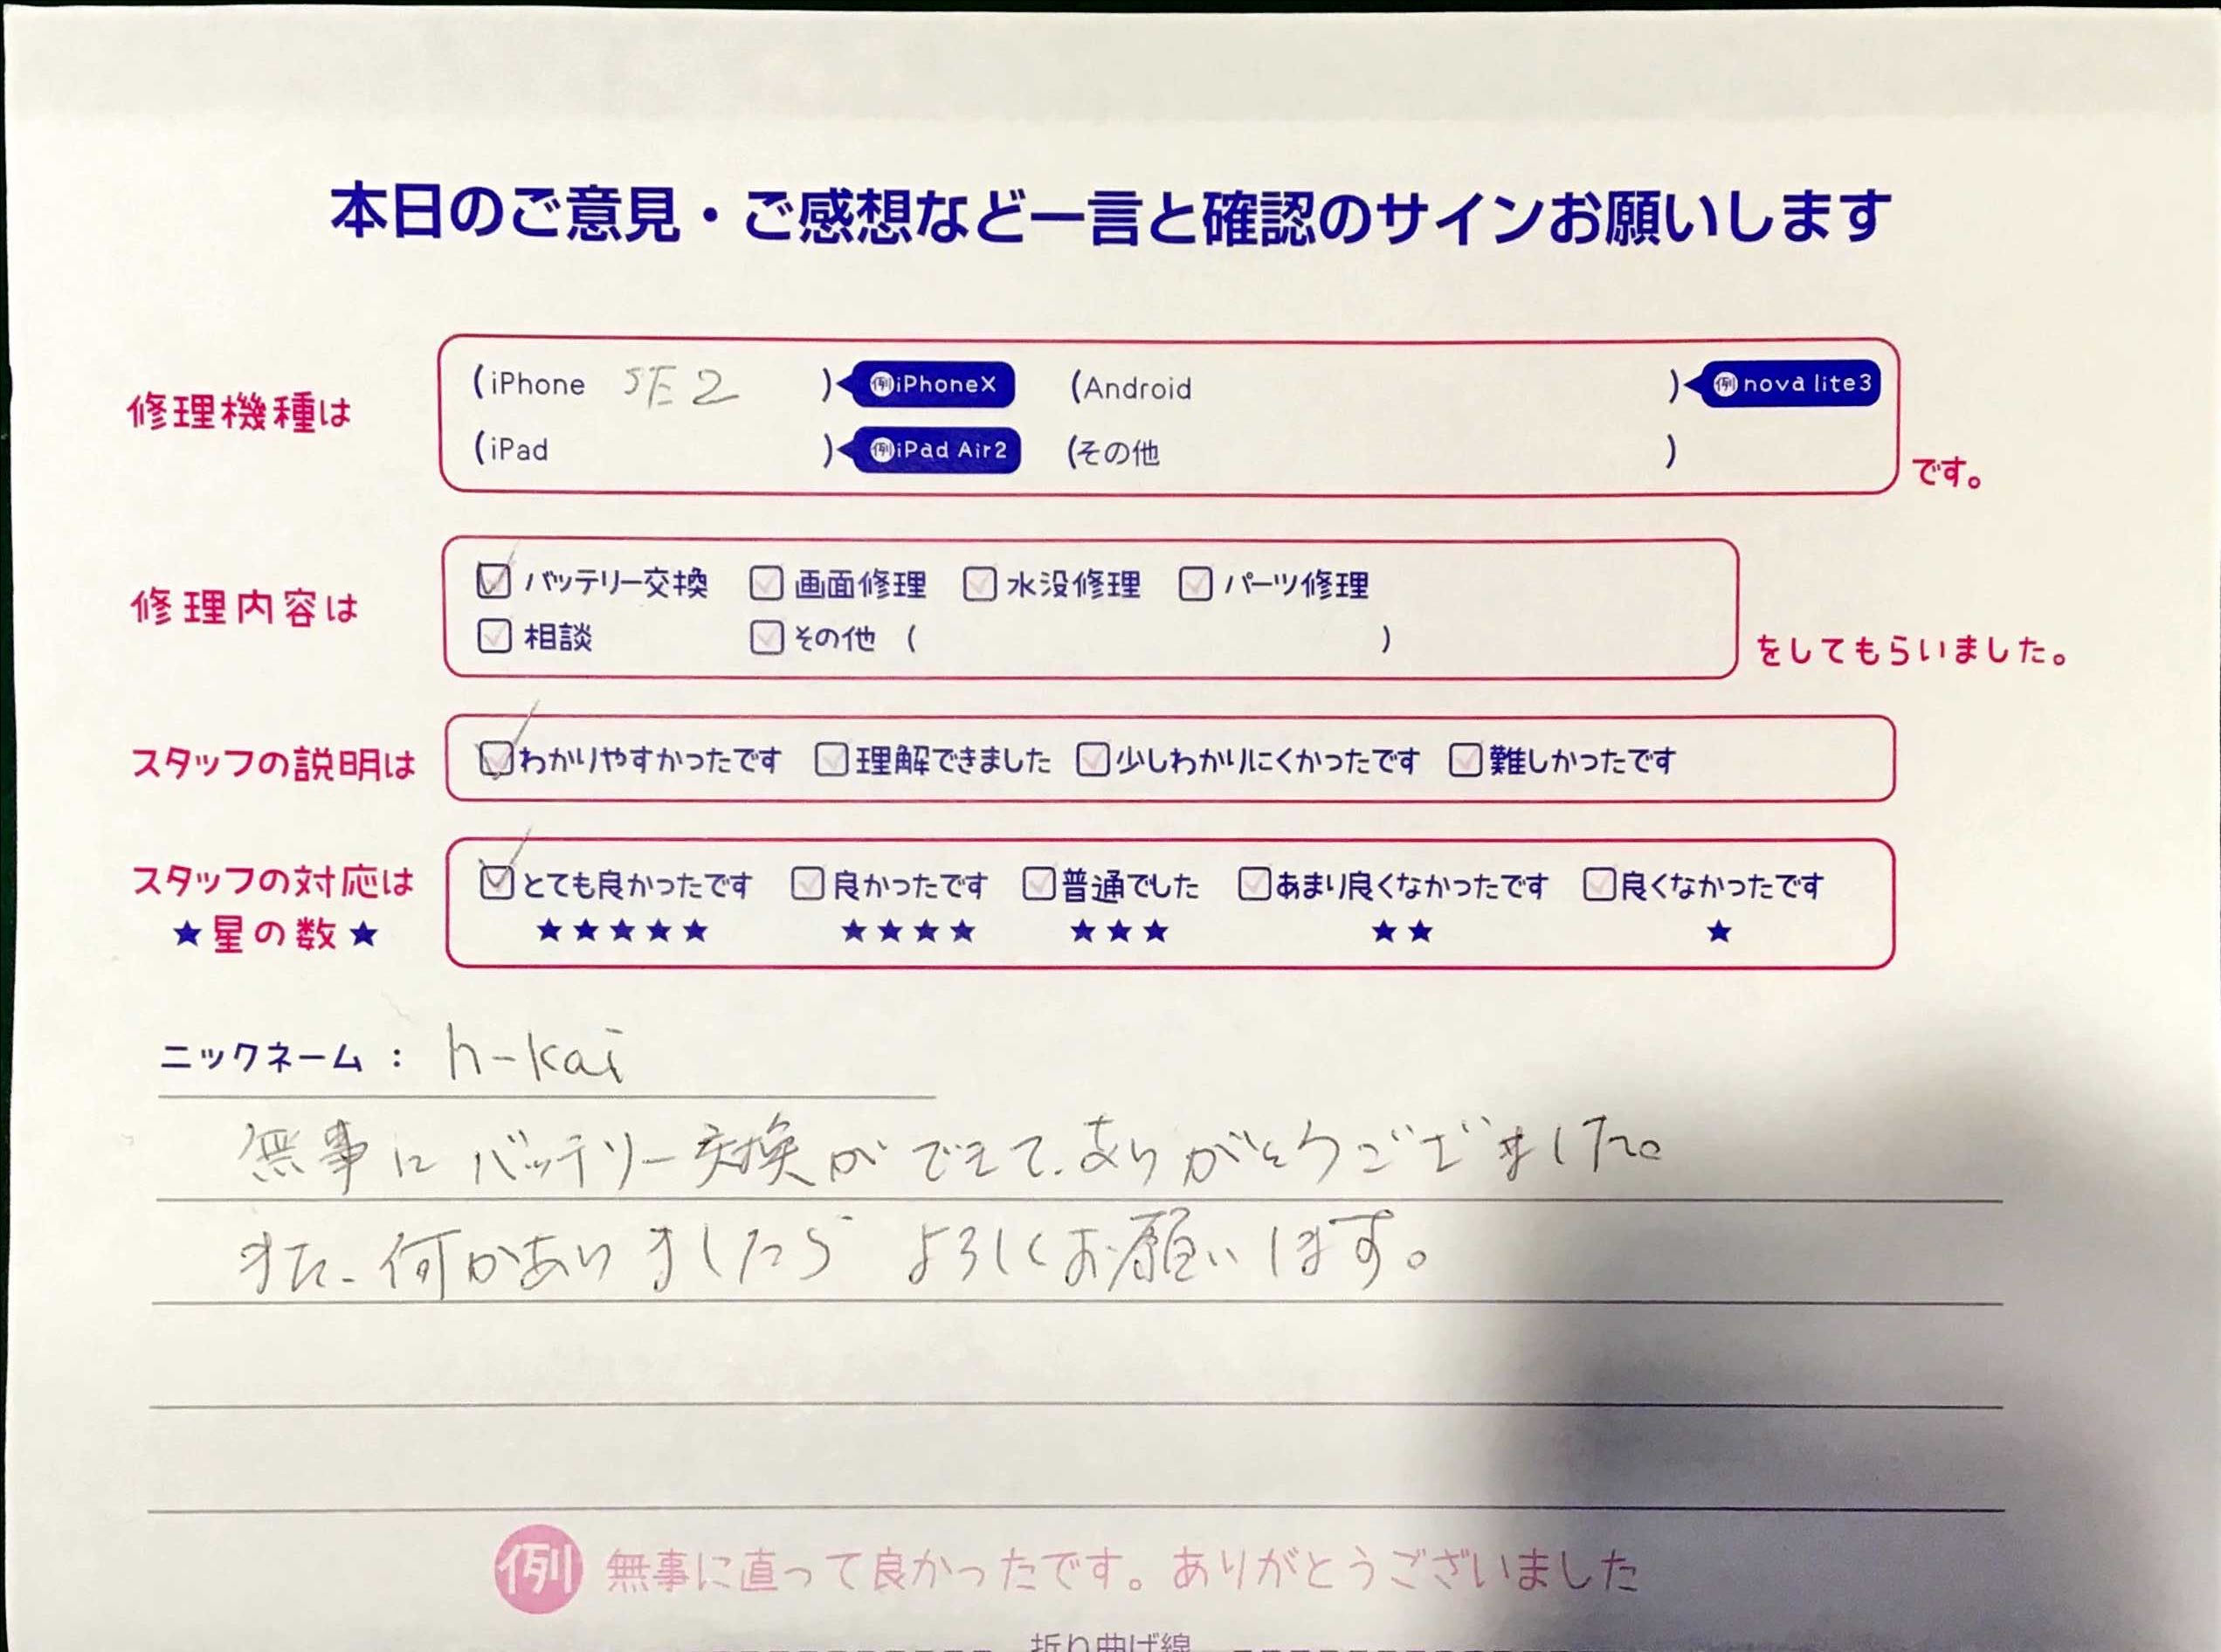 本日のご意見・ご感想など一言と確認のサインお願いします
修理機種は
(iPhone SE2 ) 例iPhoneX (Android ) 例nova lite3
(iPad ) 例iPad Air2 (その他 ) です。
修理内容は
バッテリー交換 画面修理 水没修理 パーツ修理
相談 その他 ( ) をしてもらいました。
スタッフの説明は わかりやすかったです 理解できました 少しわかりにくかったです 難しかったです
スタッフの対応は とても良かったです 良かったです 普通でした あまり良くなかったです 良くなかったです
★星の数★ ★★★★★ ★★★★ ★★★ ★★ ★
ニックネーム : h-kai
無事にバッテリー交換ができて、ありがとうございました。
また、何かありましたらよろしくお願いします。
例 無事に直って良かったです。ありがとうございました
折り曲げ線